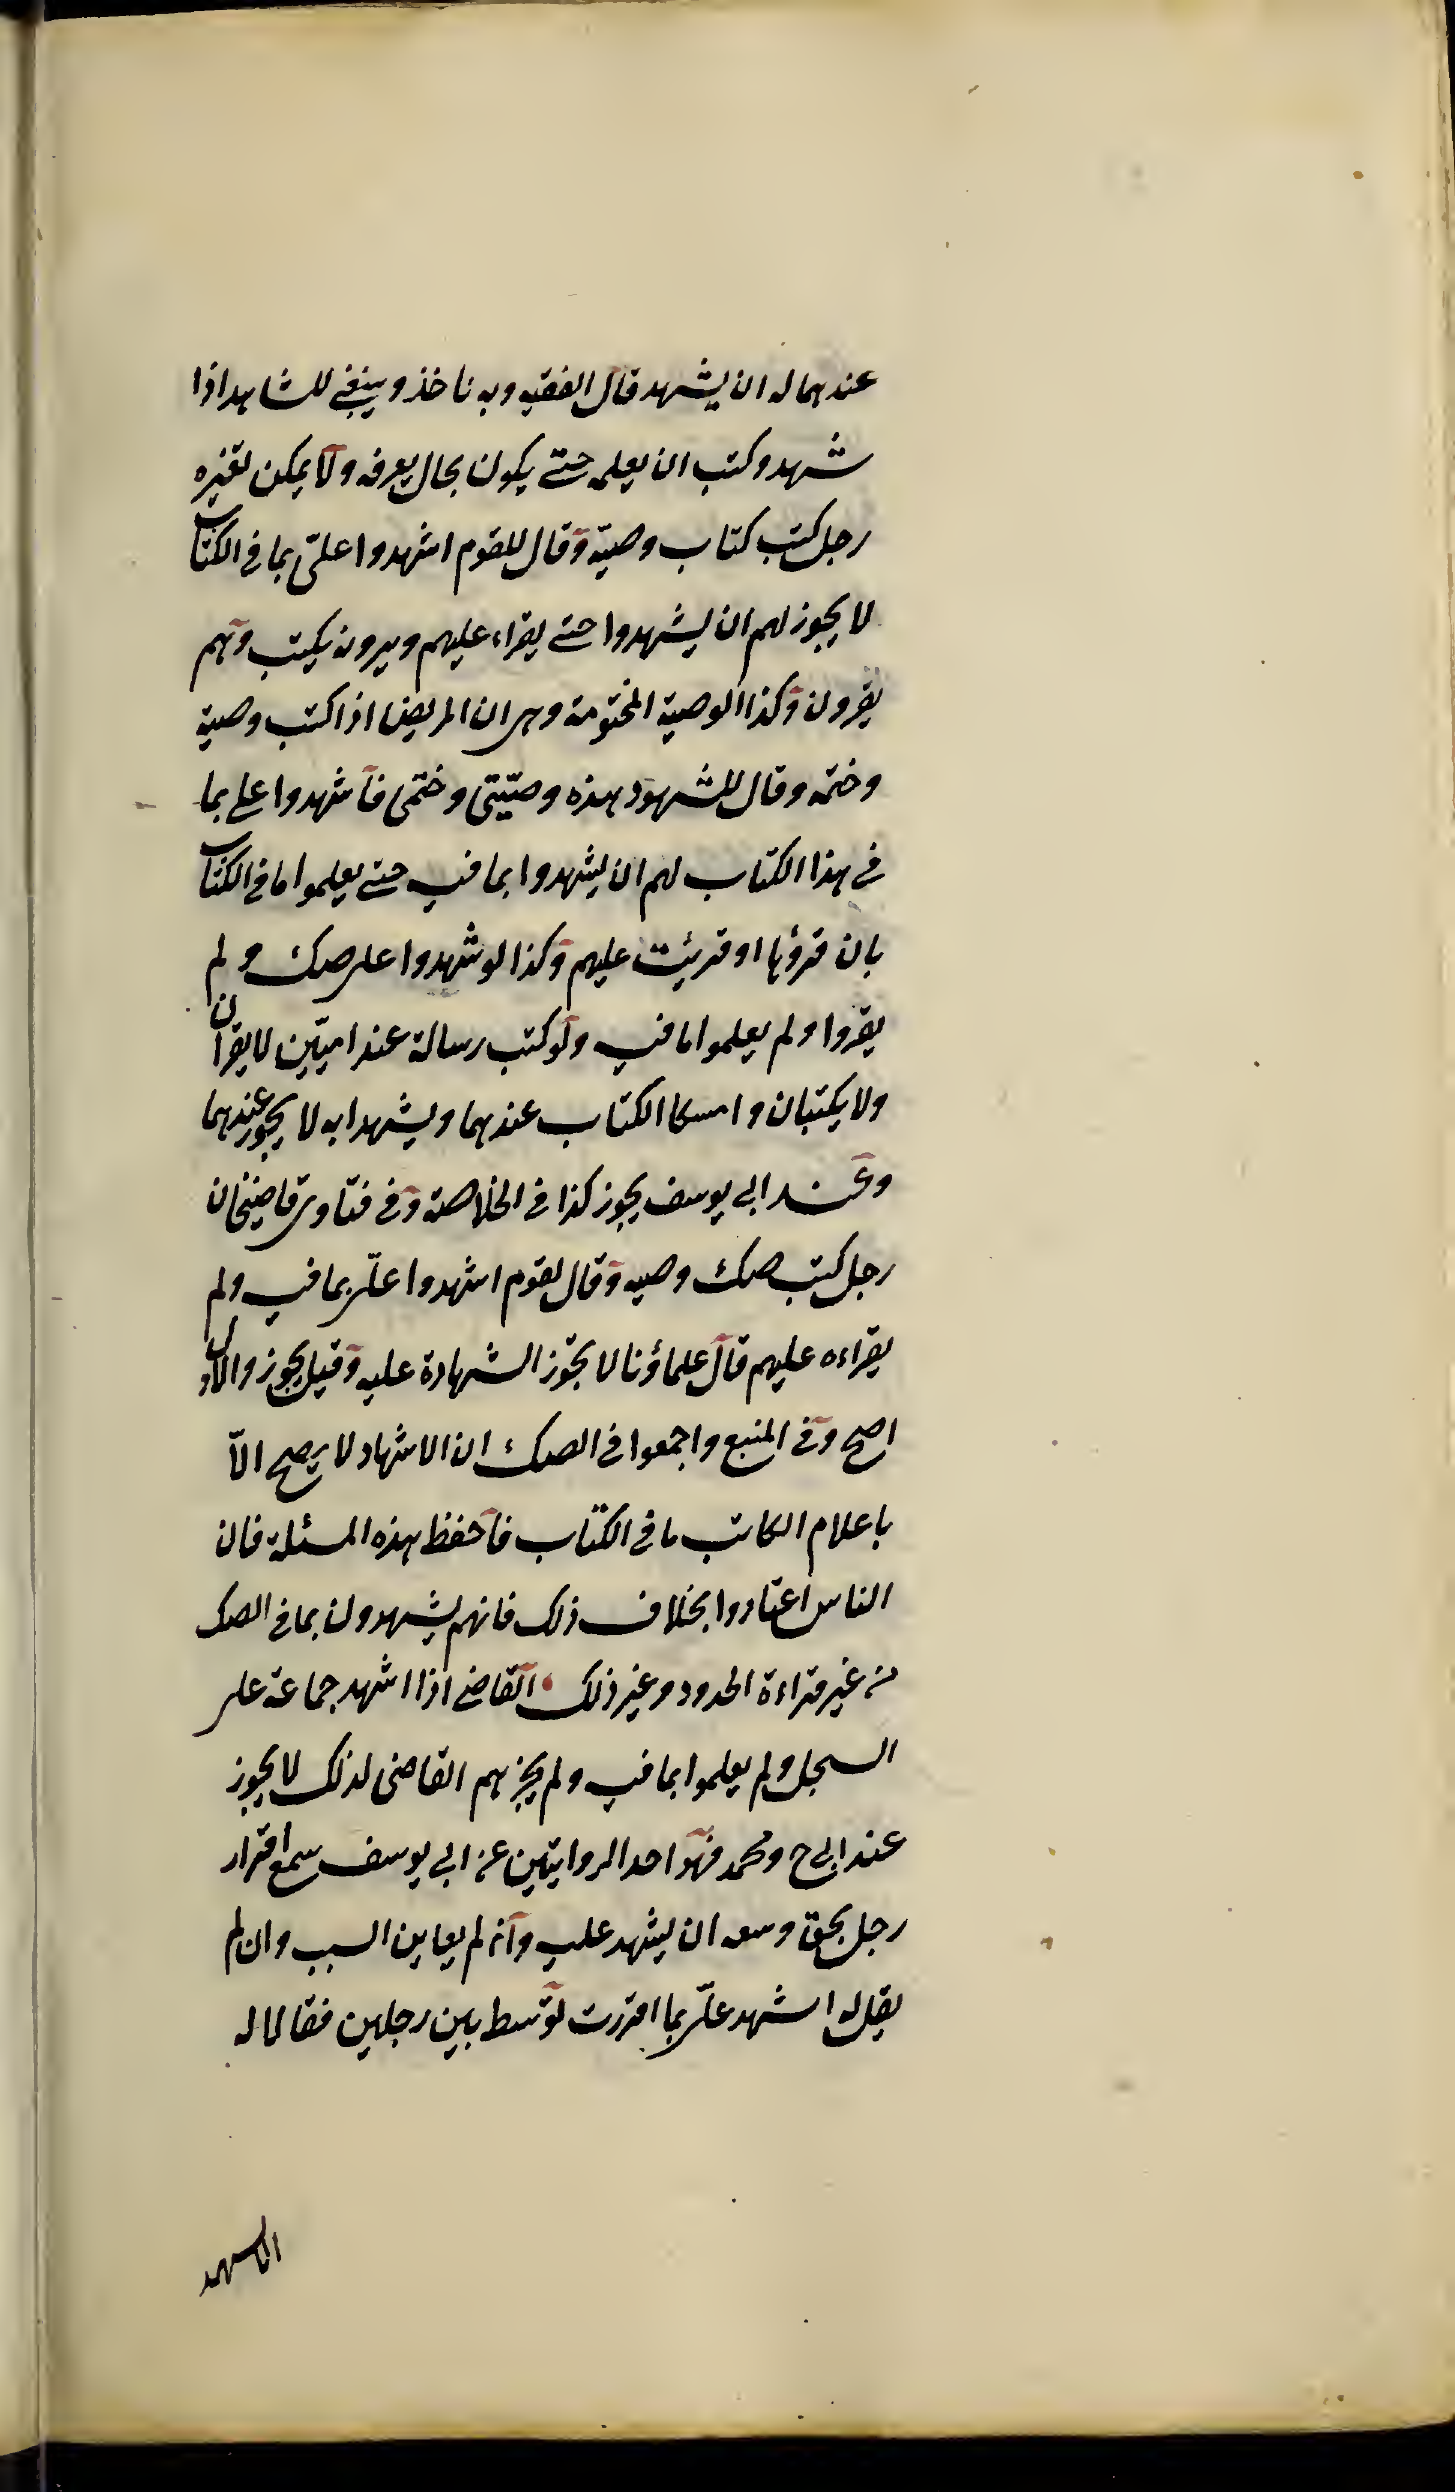 عندهما له ان يشهد قال الفقيه وبه ناخذ وينبغي للشاهد اذا
شهد وكتب ان يعلمه حتى يكون بحال يعرفه ولا يمكن تغيره
رجل كتب كتاب وصية وقال للقوم اشهدوا عليّ بما في الكتاب
لا يجوز لهم ان يشهدوا حتى يقراء عليهم ويرون يكتب وهم
يقرون وكذا الوصية المختومة وهى ان المريض اذا كتب وصية
وختمه وقال للشهود هذه وصيّتى وختمى فاشهدوا على بما
في هذا الكتاب لهم ان يشهدوا بما فيه حتى يعلموا ما في الكتاب
بان قرؤها او قرئت عليهم وكذا لو شهدوا على صك ولم
يقروا ولم يعلموا ما فيه ولو كتب رسالة عند اميّين لا يقرآن
ولا يكتبان وامسكا الكتاب عندهما ويشهدا به لا يجوز عندهما
وعند ابى يوسف يجوز كذا في الخلاصة وفي فتاوى قاضيخان
رجل كتب صك وصيه وقال لقوم اشهدوا علىّ بما فيه ولم
يقراءه عليهم قال علماؤنا لا يجوز الشهادة عليه وقيل يجوز والاول
اصح وفي المنبع واجمعوا في الصك ان الاشهاد لا يصح الاّ
باعلام الكاتب ما في الكتاب فاحفظ هذه المسئلة فان
الناس اعتادوا بخلاف ذلك فانهم يشهدون بما في الصك
من غير قراءة الحدود وغير ذلك القاضى اذا اشهد جماعة على
السجل ولم يعلموا بما فيه ولم يخبرهم القاضى لذلك لا يجوز
عند ابى ح ومحمد فهو احد الروايتين عن ابى يوسف سمع اقرار
رجل بحق وسعه ان يشهد عليه وان لم يعاين السبب وان لم
يقل له اشهد علىّ بما اقررت توسط بين رجلين فقالا له